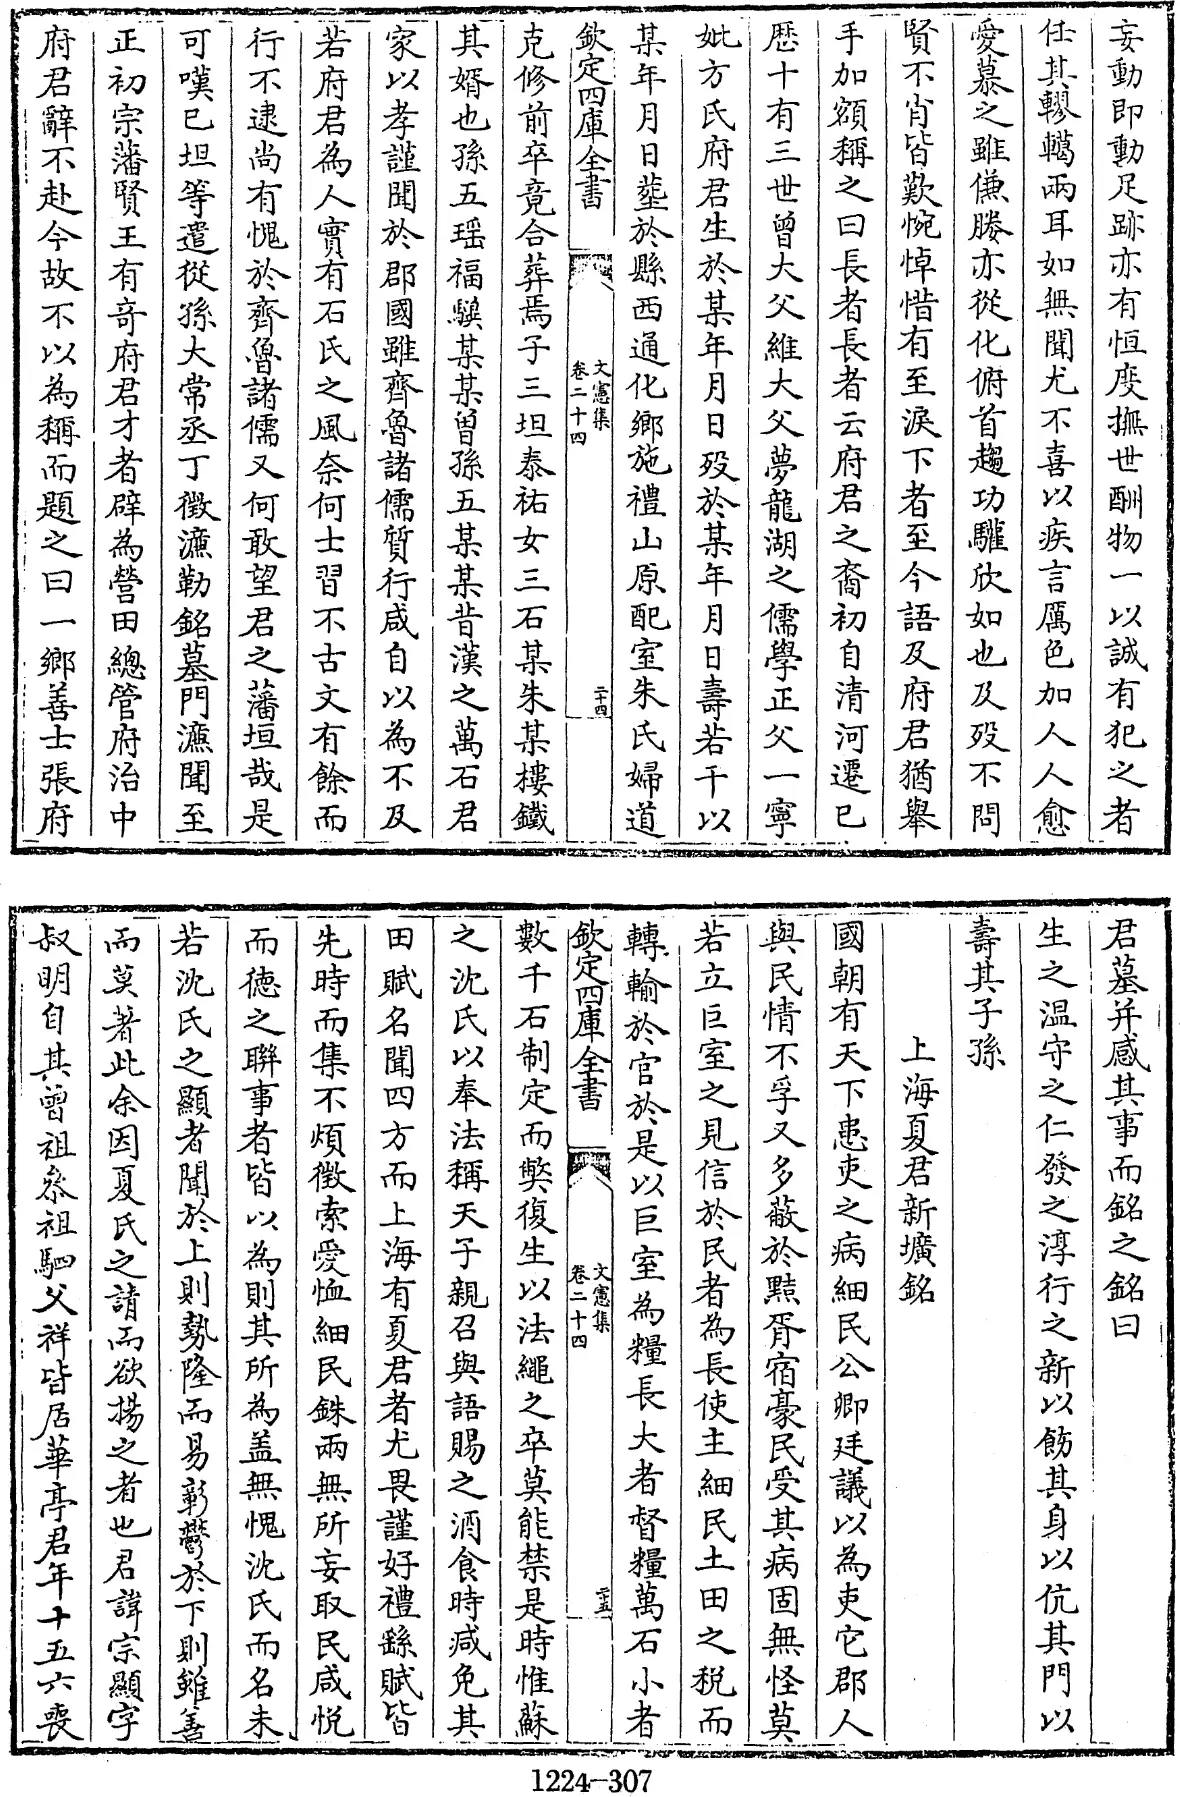 妄動即動足跡亦有恒度撫世酬物一以誠有犯之者
任其轇轕兩耳如無聞尤不喜以疾言厲色加人人愈
愛慕之雖傔媵亦從化俯首趨功驩欣如也及歿不問
賢不肖皆歎惋悼惜有至淚下者至今語及府君猶舉
手加額稱之曰長者長者云府君之裔初自清河遷已
歷十有三世曾大父維大父夢龍湖之儒學正父一寧
妣方氏府君生於某年月日歿於某年月日壽若干以
某年月日塟於縣西通化鄉施禮山原配室朱氏婦道
欽定四庫全書
文憲集
卷二十四
二十四
克修前卒竟合葬焉子三坦泰祐女三石某朱某摟鐵
其婿也孫五瑶福驥某某曾孫五某某昔漢之萬石君
家以孝謹聞於郡國雖齊魯諸儒質行咸自以為不及
若府君為人實有石氏之風奈何士習不古文有餘而
行不逮尚有愧於齊魯諸儒又何敢望君之藩垣哉是
可嘆已坦等遣從孫大常丞丁徵濂勒銘墓門濂聞至
正初宗藩賢王有奇府君才者辟為營田總管府治中
府君辭不赴今故不以為稱而題之曰一鄉善士張府
君墓并感其事而銘之銘曰
生之溫守之仁發之淳行之新以飭其身以伉其門以
壽其子孫
上海夏君新壙銘
國朝有天下患吏之病細民公卿廷議以為吏它郡人
與民情不孚又多蔽於黠胥宿豪民受其病固無怪莫
若立巨室之見信於民者為長使主細民土田之稅而
轉輸於官於是以巨室為糧長大者督糧萬石小者
欽定四庫全書
文憲集
卷二十四
二十五
數千石制定而獘復生以法繩之卒莫能禁是時惟蘇
之沈氏以奉法稱天子親召與語賜之酒食時減免其
田賦名聞四方而上海有夏君者尤畏謹好禮繇賦皆
先時而集不煩徵索愛恤細民銖兩無所妄取民咸悅
而德之聨事者皆以為則其所為盖無愧沈氏而名未
若沈氏之顯者聞於上則勢隆而易彰鬱於下則雖善
而莫著此余因夏氏之請而欲揚之者也君諱宗顯字
叔明自其曾祖叅祖駟父祥皆居華亭君年十五六喪
1224-307